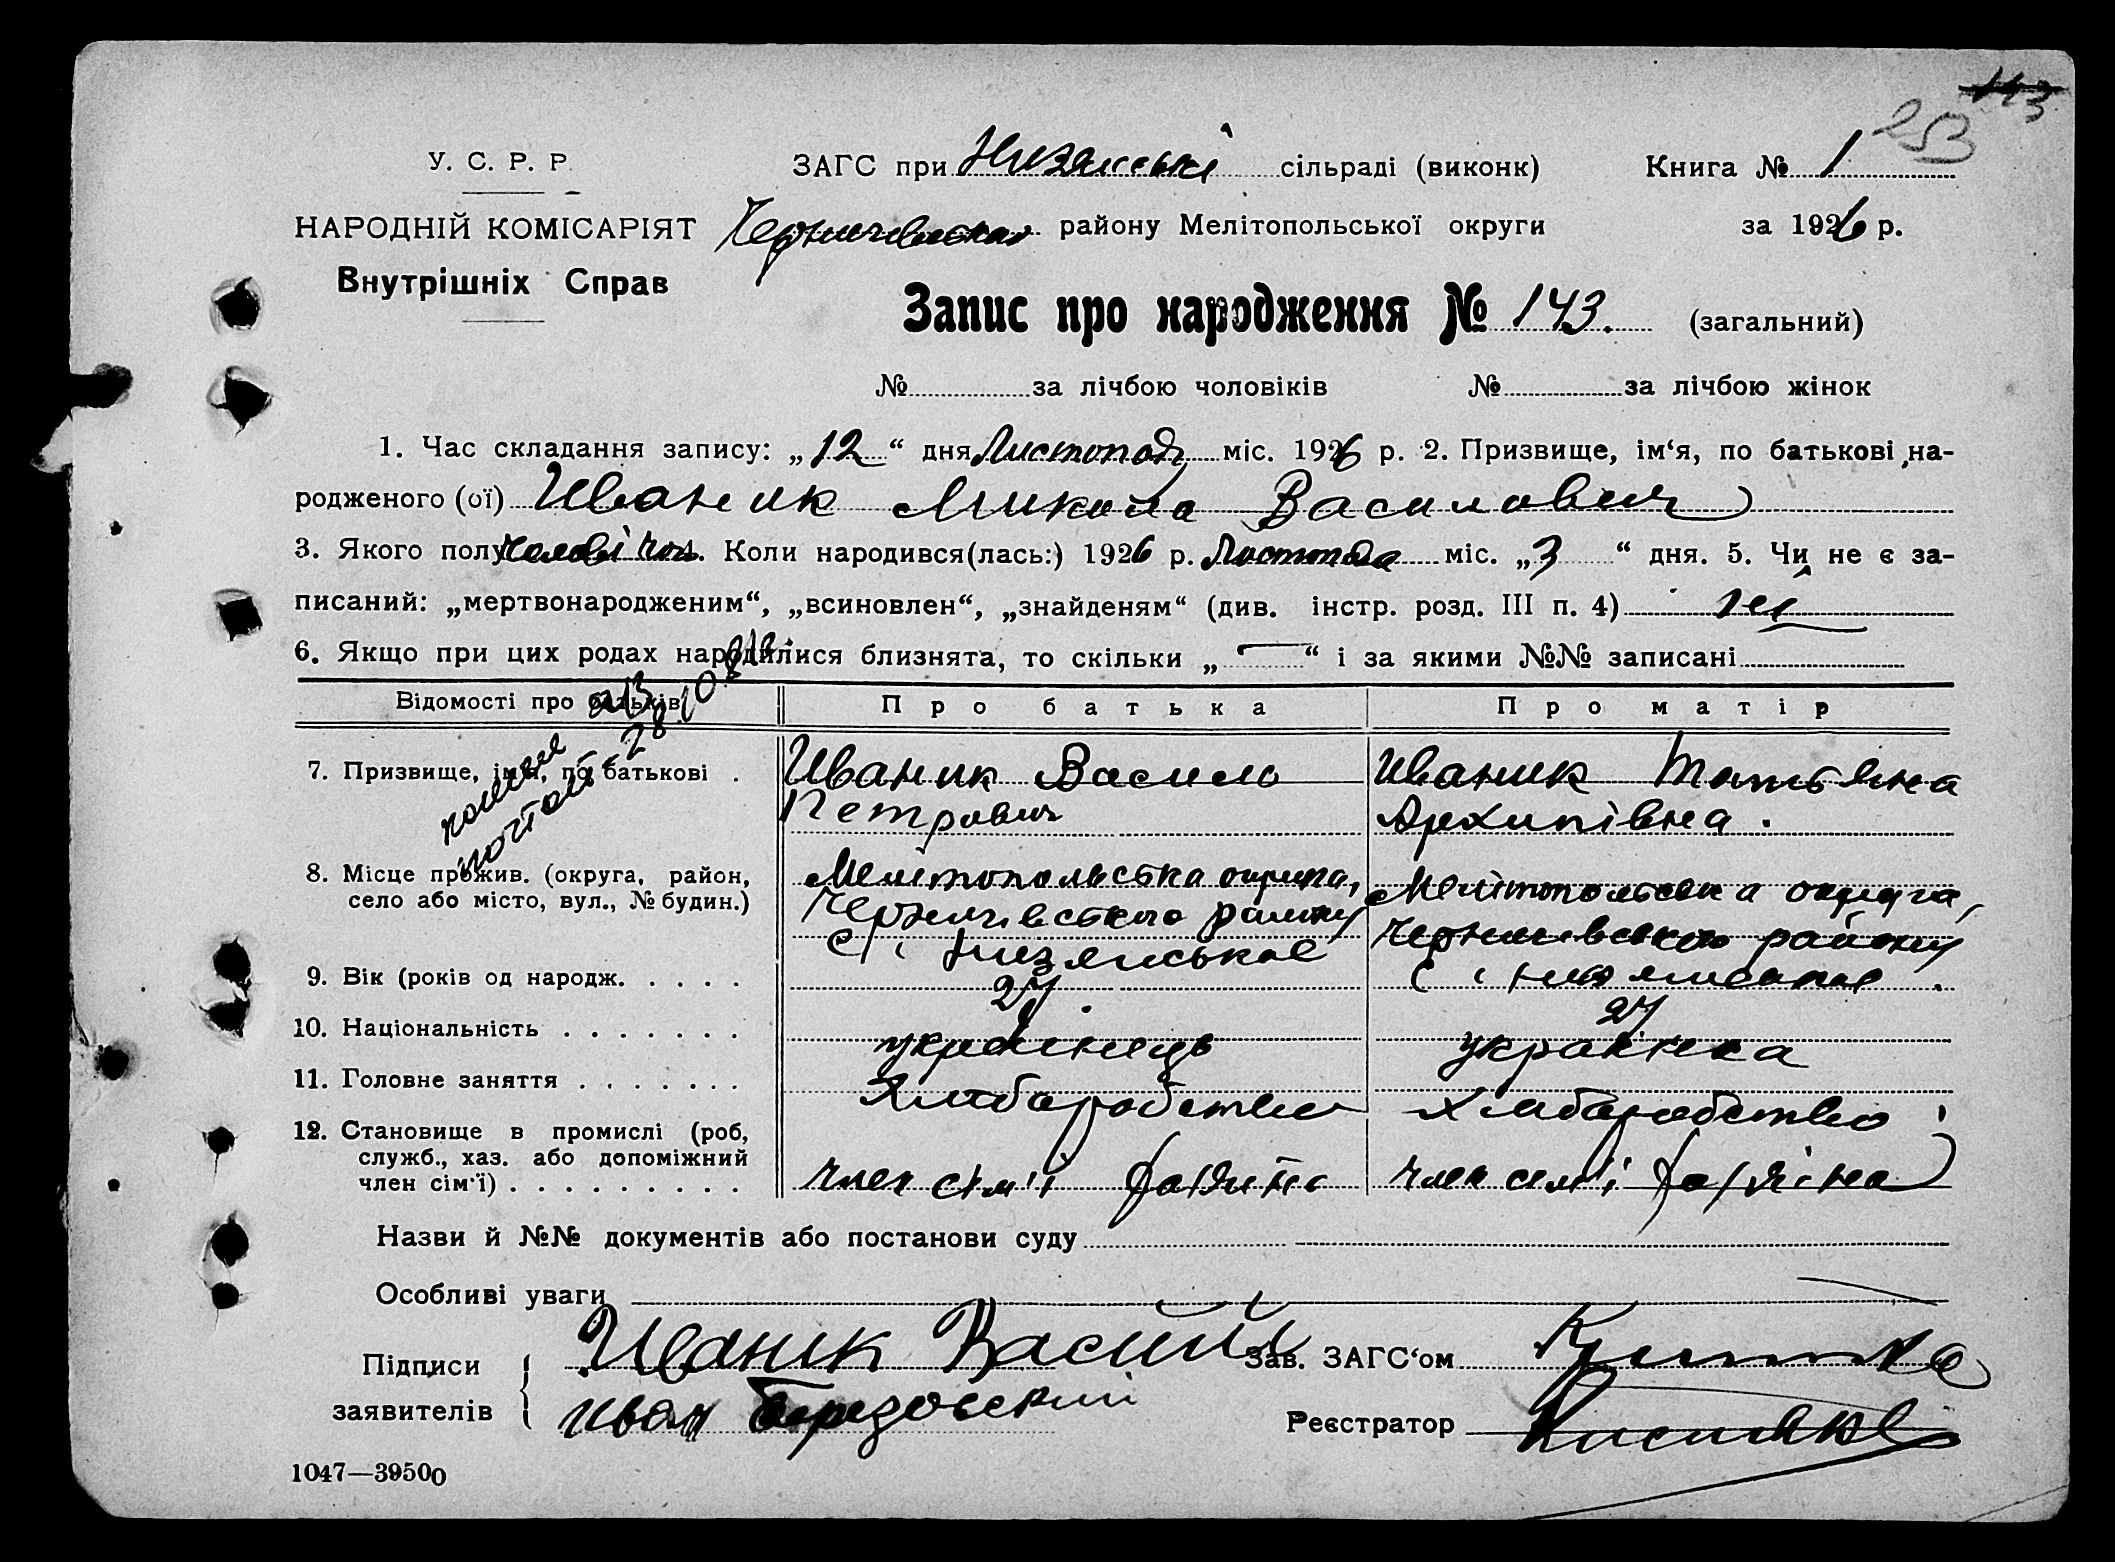 143
253
У. С. Р. Р.
ЗАГС при Низянські сільраді (виконк) Книга № 1
НАРОДНІЙ КОМІСАРІЯТ району Мелітопольської округи за 1926 р.
Внутрішніх Справ
Запис про народження № 143. (загальний)
№ за лічбою чоловіків № за лічбою жінок
1. Час складання запису: „12“ дня Листопад міс. 1926 р. 2. Призвище, ім‘я, по батькові на-
родженого (ої) Иваник Микола Василович
3. Якого полу 4. Коли народився(лась:) 1926 р. Листопада міс. „3“ дня. 5. Чи не є за-
писаний: „мертвонародженим“, „всиновлен“, „знайденям“ (див. інстр. розд. III п. 4) ні
6. Якщо при цих родах народилися близнята, то скільки „—“ і за якими №№ записані
Відомості про батьків Про батька Про матір
7. Призвище, ім‘я, по батькові . Иваник Василь Иваник Татьяна
Петрович Архипівна .
8. Місце прожив. (округа, район, Мелітопольська округа, Мелітопольська округа,
село або місто, вул., № будин.) Чернигівського району Чернигівського району
с. Низянське с. Низянське .
9. Вік (років од народж. . . . . 27 27
10. Національність . . . . . . . українець українка
11. Головне заняття . . . . . . . Хлібаробство Хлібаробство
12. Становище в промислі (роб,
служб., хаз. або допоміжний
член сім‘ї) . . . . . . . . . член сім'ї член сім'ї
Назви й №№ документів або постанови суду
Особливі уваги
Підписи Иваник Василь Зав. ЗАГС‘ом
заявителів Иван Реєстратор
1047—39500